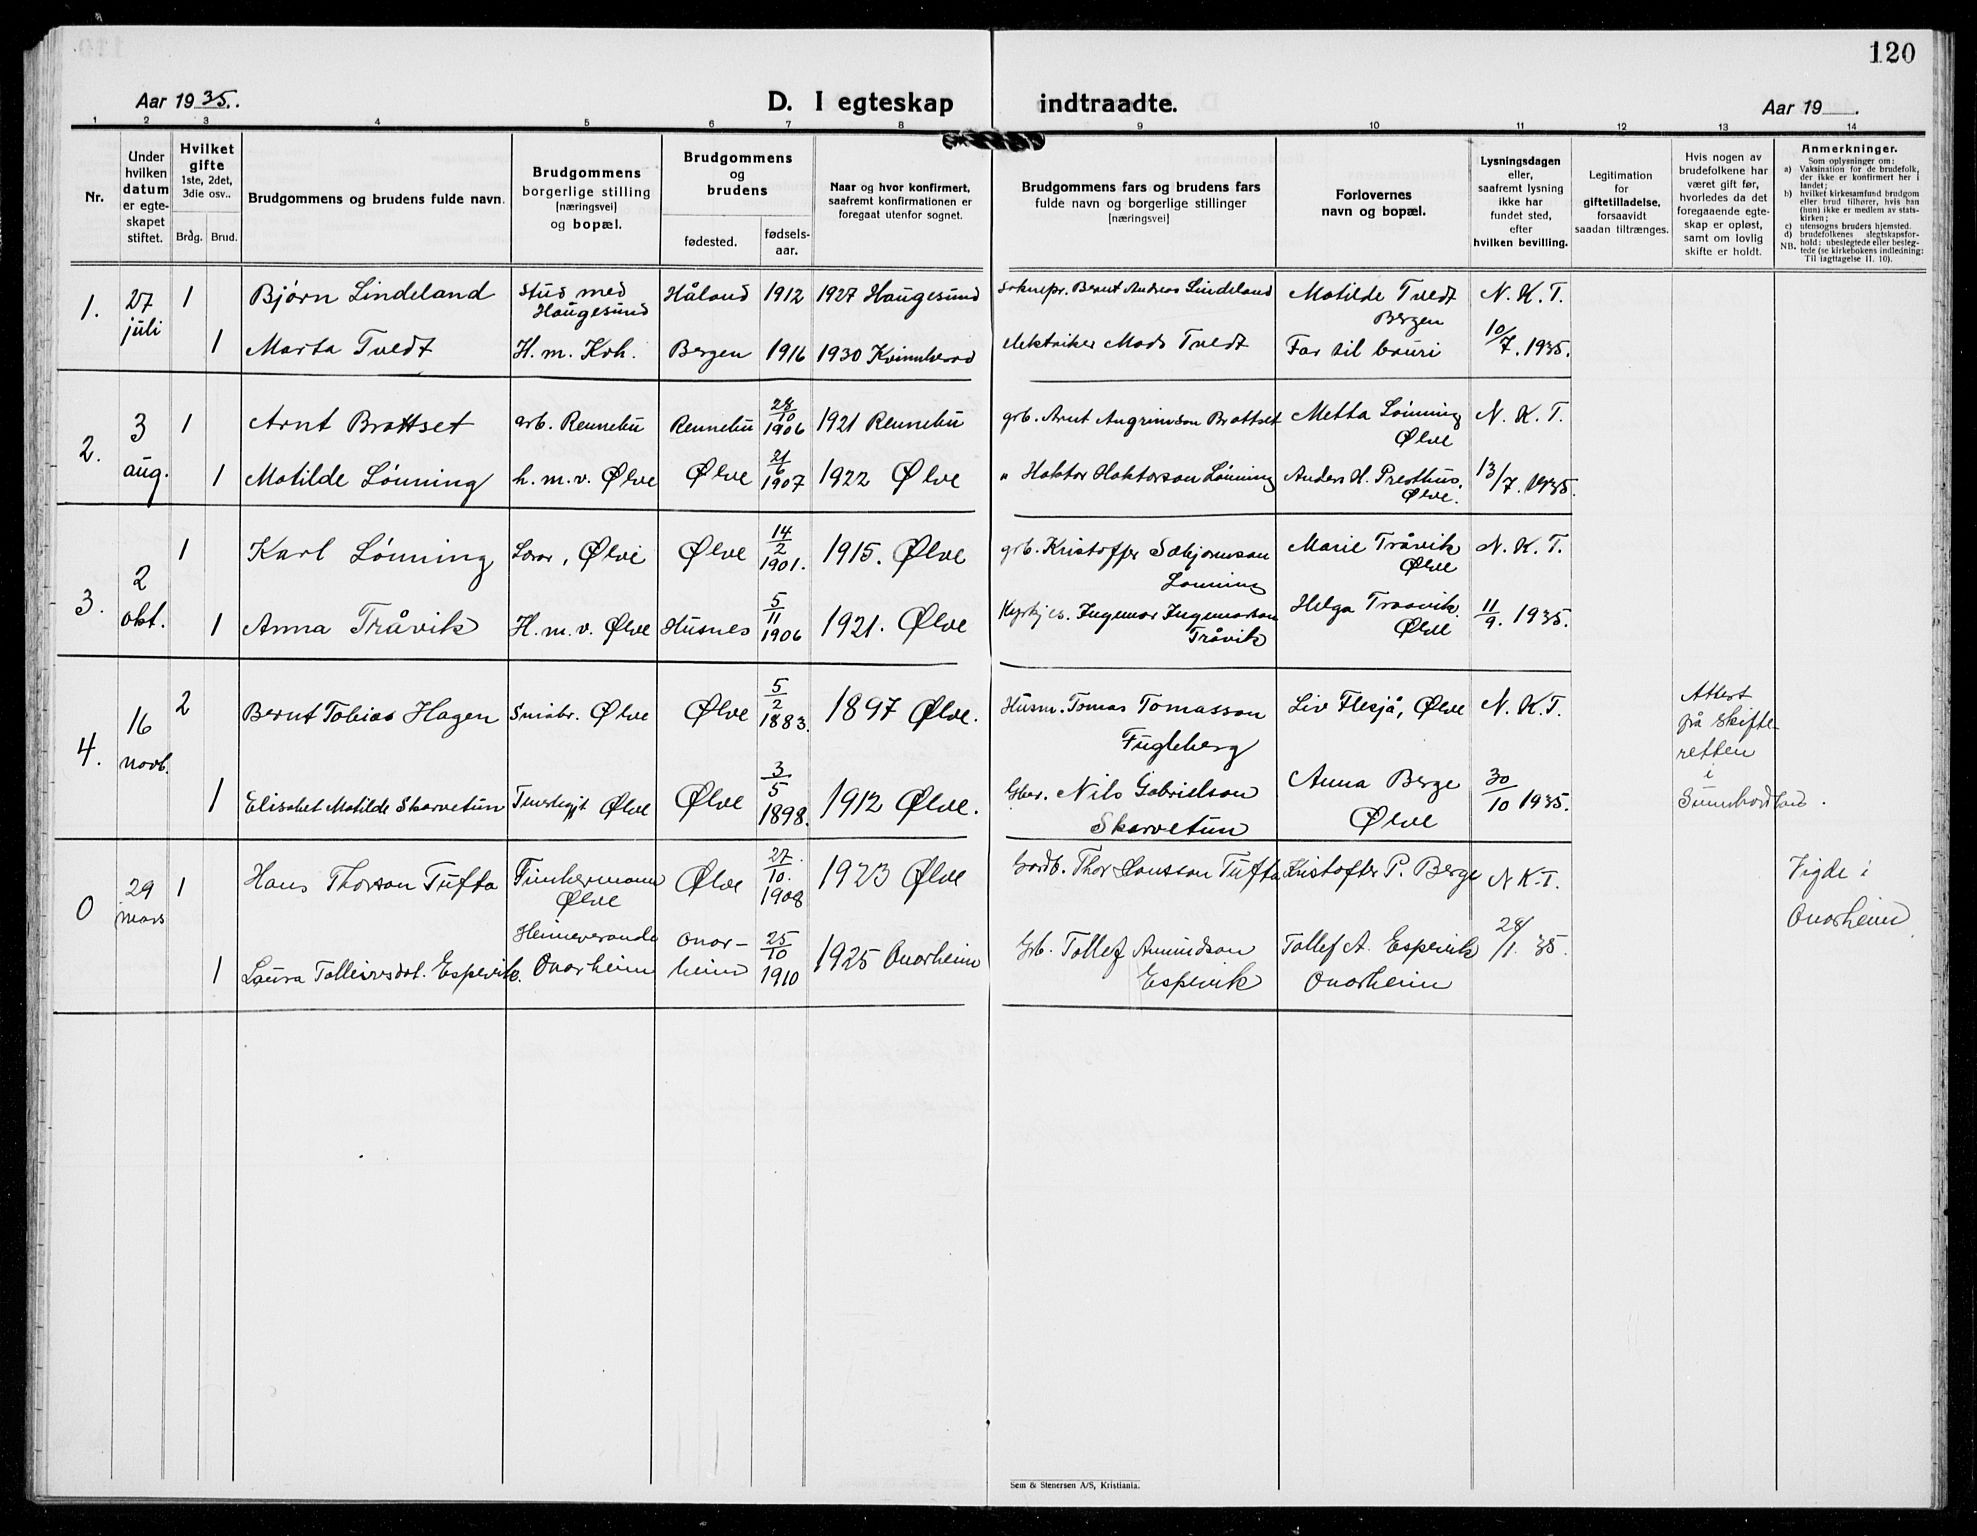 120
Aar 1935.
D. I egteskap indtraadte.
Aar 19
1 2 3 4 5 6 7 8 9 10 11 12 13 14
Nr.
Under hvilken datum er egteskapet stiftet.
Hvilket gifte 1ste, 2det, 3die osv..
Brdg. Brud.
Brudgommens og brudens fulde navn.
Brudgommens borgerlige stilling (næringsvei) og bopæl.
Brudgommens og brudens
fødested.
fødsels-aar.
Naar og hvor konfirmert, saafremt konfirmationen er foregaat utenfor sognet.
Brudgommens fars og brudens fars fulde navn og borgerlige stillinger (næringsvei)
Forlovernes navn og bopæl.
Lysningsdagen eller, saafremt lysning ikke har fundet sted, efter hvilken bevilling.
Legitimation for giftetilladelse, forsaavidt saadan tiltrænges.
Hvis nogen av brudefolkene har været gift før, hvorledes da det foregaaende egteskap er opløst, samt om lovlig skifte er holdt.
Anmerkninger.
Som oplysninger om:
a) Vaksination for de brudefolk, der ikke er konfirmert her i landet;
b) hvilket kirkesamfund brudgom eller brud tilhører, hvis han (hun) ikke er medlem av statskirken;
c) utensogns bruders hjemsted.
d) brudefolkenes slegtskapsforhold: ubeslegtede eller beslegtede (se kirkebokens indledning: Til iagttagelse II. 10).
NB.
1. 27 juli 1 Bjørn Lindeland stud med Haugesund Håland 1912 1927 Haugesund Soknepr. Bernt Andreas Lindeland Matilde Tvedt Bergen N. K. T.
1 Marta Tvedt H. m. Kvh. Bergen 1916 1930 Kvinnherad elektriker Mads Tvedt Far til bruri 10/7. 1935.
2. 3 aug. 1 Arnt Brattset arb. Rennebu Rennebu 28/10 1906 1921 Rennebu grb. Arnt Angrimson Brattset Metta Lønning Ølve N. K. T.
1 Matilde Lønning h. m. v. Ølve Ølve 21/6 1907 1922 Ølve " Haktor Haktorson Lønning Anders H. Presthus, Ølve. 13/7. 1935.
3. 2 okt. 1 Karl Lønning Lærar, Ølve Ølve 14/2 1901. 1915. Ølve grb. Kristoffer Sæbjørnson Lønning Marie Tråvik Ølve N. K. T.
1 Anna Tråvik H. m. v. Ølve Husnes 5/11 1906 1921. Ølve Kyrkjes. Ingemar Ingemarson Tråvik Helga Traavik Ølve 11/9. 1935.
4. 16 novb. 2 Bernt Tobias Hagen Småbr. Ølve Ølve 5/2 1883. 1897 Ølve. Husm. Tomas Tomasson Fugleberg Liv Flesjå, Ølve N. K. T. Attest frå skifteretten i Sunnhordlan.
1 Elisabet Matilde Skarvetun Ølve Ølve 3/5 1898. 1912 Ølve. Gbr. Nils Gabrielson Skarvetun Anna Berge Ølve 30/10 1935.
0 29 mars 1 Hans Thorson Tufta Timbermann Ølve Ølve 27/10. 1908 1923 Ølve Gardb. Thor Hansson Tufta Kristoffer P. Berge N K. T. Vigde i Onarheim
1 Laura Tolleivsdot. Espevik. Heimeverande Onarheim Onarheim 25/10 1910 1925 Onarheim Grb. Tollef Amundson Espevik Tollef A. Espevik Onarheim 28/1. 35.
Sem & Stenersen A/S, Kristiania.